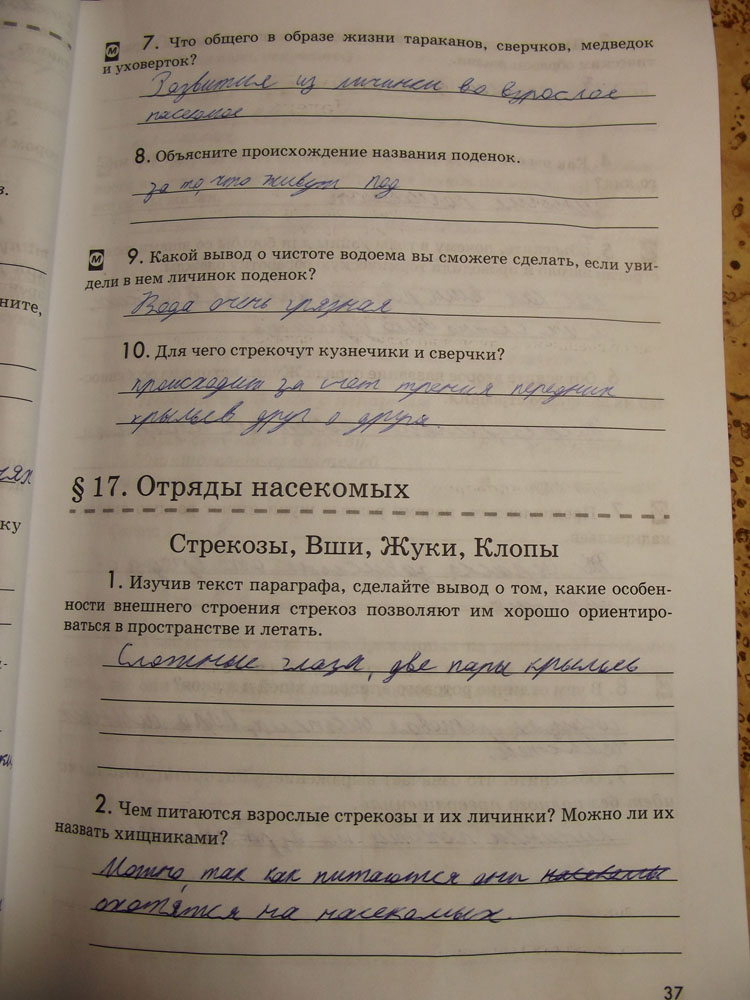 7. Что общего в образе жизни тараканов, сверчков, медведок
и уховерток?
Развития из личинки во взрослое
насекомое
8. Объясните происхождение названия поденок.
за то, что живут под
9. Какой вывод о чистоте водоема вы сможете сделать, если уви-
дели в нем личинок поденок?
Вода очень грязная
10. Для чего стрекочут кузнечики и сверчки?
происходит за счет трения передних
крыльев друг о друга.
§ 17. Отряды насекомых
Стрекозы, Вши, Жуки, Клопы
1. Изучив текст параграфа, сделайте вывод о том, какие особен-
ности внешнего строения стрекоз позволяют им хорошо ориентиро-
ваться в пространстве и летать.
Сложные глаза, две пары крыльев
2. Чем питаются взрослые стрекозы и их личинки? Можно ли их
назвать хищниками?
Можно, так как питаются они
охотятся на насекомых.
37
ните,
ях
ку